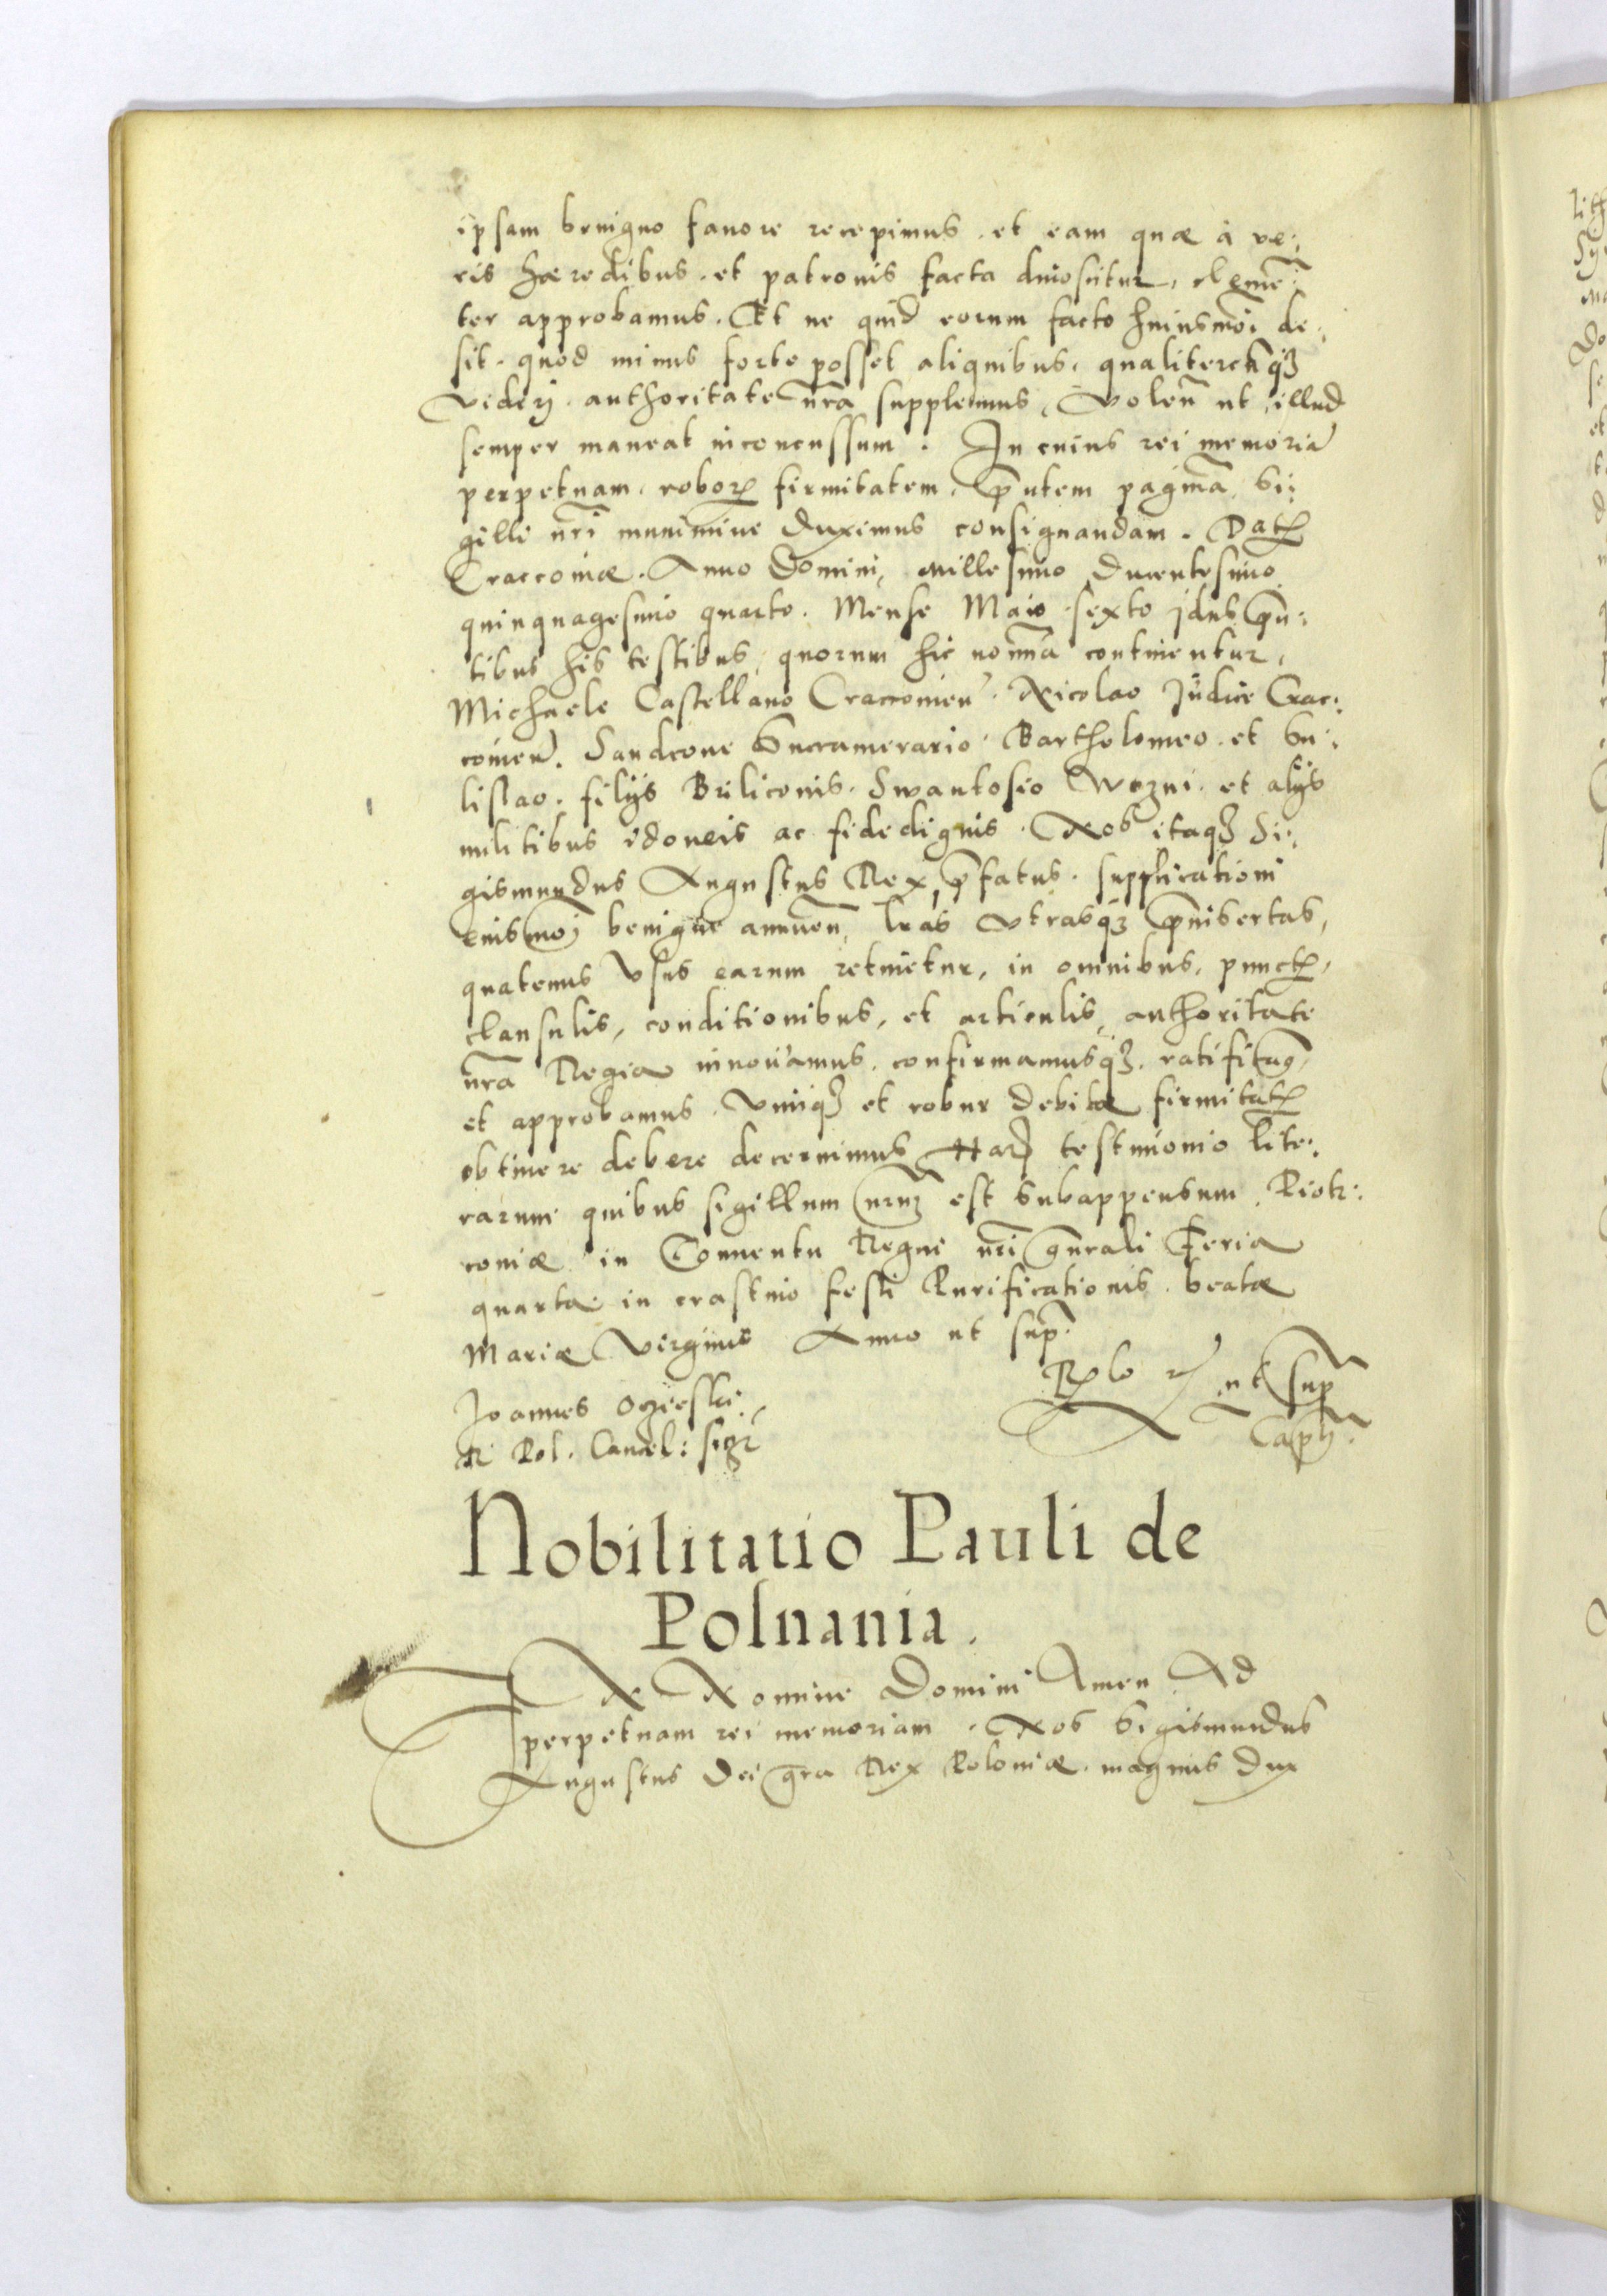 ipsam benigno favore recepimus. et eam quæ à ve:
ris hæredibus. et patronis facta dinoscitur, clemẽ:
ter approbamus. Et ne quid eorum facto huiusmõi de:
sit. quod minus forte posset aliquibus, qualitercũqꝫ
viderj. authoritate nr̃a supplemus, Volen̄ ut illud
semper maneat inconcussum. In cuius rei memoriã
perpetuam. roborꝭ firmitatem. p̃ntem paginã si:
gilli nr̃i munimine duximus consignandam. Datꝭ
Craccoviæ. Anno Domini, millesimo ducentesimo
quinquagesimo quarto. Mense Maio sexto jdus p̃n:
tibus his testibus, quorum hic nomĩa continentur,
Michaele Castellano Craccovien̄. Nicolao Judice Crac:
covien̄. Sandcone Succamerario. Bartholomeo. et Su:
lislao. filijs Briliconis. Swantosio Wozni. et alijs
militibus idoneis ac fidedignis. Nos itaqꝫ Si:
gismundus Augustus Rex p̃fatus. supplicationi
eiusmoj benigne annuen̄, lr̃as utrasqꝫ p̃nisertas,
quatenus usus earum retinetur, in omnibus, punctꝭ,
clausulis, conditionibus, et articulis, authoritate
nr̃a Regia innovamus. confirmamusqꝫ. ratificamꝰ,
et approbamus. Vimqꝫ et robur debitæ firmitatꝭ
obtinere debere decernimus. Harꝭ testimonio lite:
rarum quibus sigillum nr̃um est subappensum. Piotr:
coviæ in Conventu Regni nr̃i gn̄rali Feria
quarta in crastino festi Purificationis. beatæ
Mariæ Virginis Anno ut sup̃.
Joannes Oczieski,
R. Pol. Cancel: sszt
ut sup̃
Nobilitatio Pauli de
Polnania.
IN Nomine Domini Amen Ad
perpetuam rei memoriam. Nos Sigismundus
Augustus Dei gr̃a Rex Poloniæ. magnus dux